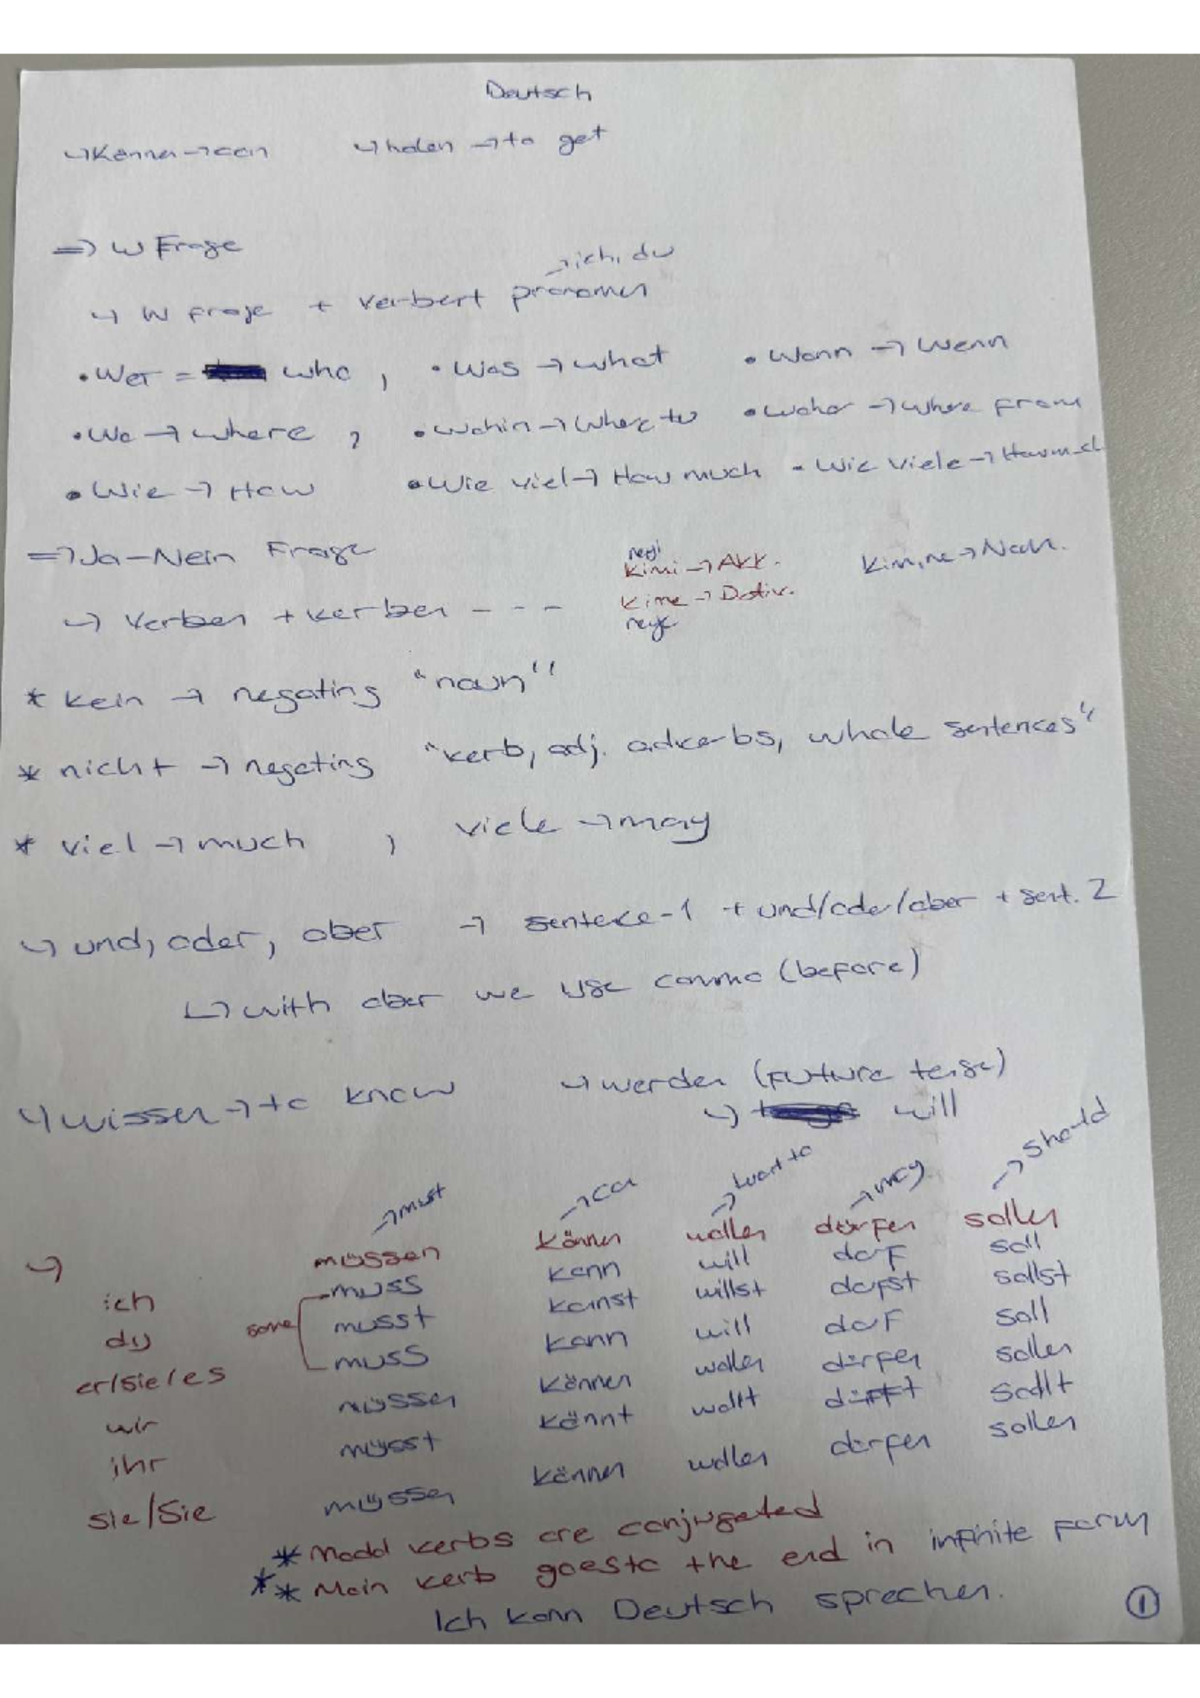 Deutsch
↳ Können → can ↳ holen → to get
⇒ W Frage
→ ich, du
↳ W Frage + Verbert pronomen
• Wer = who , • Was → what • Wann → Wenn
• Wo → where , • Wohin → Where to • Woher → Where from
• Wie → How • Wie viel → How much • Wie viele → How much
⇒ Ja-Nein Frage
neyi
kimi → Akk. Kim, ne → Nom.
→ Verben + verben - - - kime → Dativ.
neye
* kein → negating "noun"
* nicht → negating "verb, adj. adverbs, whole sentences"
* viel → much , viele → many
↳ und, oder, aber → sentence-1 + und/oder/aber + sent. 2
↳ with aber we use comma (before)
↳ wissen → to know ↳ werden (Future tense)
↳ will
→ must → can → want to → may → should
↳ müssen können wollen dürfen sollen
ich muss kann will darf soll
du same musst kannst willst darfst sollst
er/sie/es muss kann will darf soll
wir müssen können wollen dürfen sollen
ihr müsst könnt wollt dürft sollt
sie/Sie müssen können wollen dürfen sollen
* Modal verbs are conjugated
** Main verb goes to the end in infinite form
Ich kann Deutsch sprechen.
1